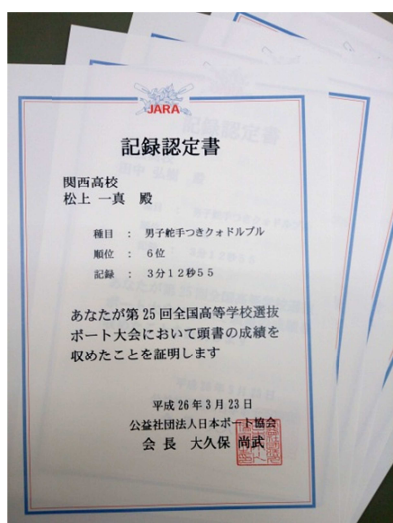 JARA
記録認定書
関西高校
松上 一真 殿
種目 : 男子舵手つきクォドルプル
順位 : 6位
記録 : 3分12秒55
あなたが第25回全国高等学校選抜
ボート大会において頭書の成績を
収めたことを証明します
平成26年3月23日
公益社団法人日本ボート協会
会長 大久保 尚武